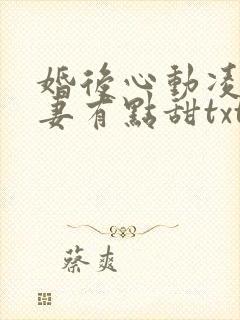 婚後心動凌
妻有點甜txt
蔡爽